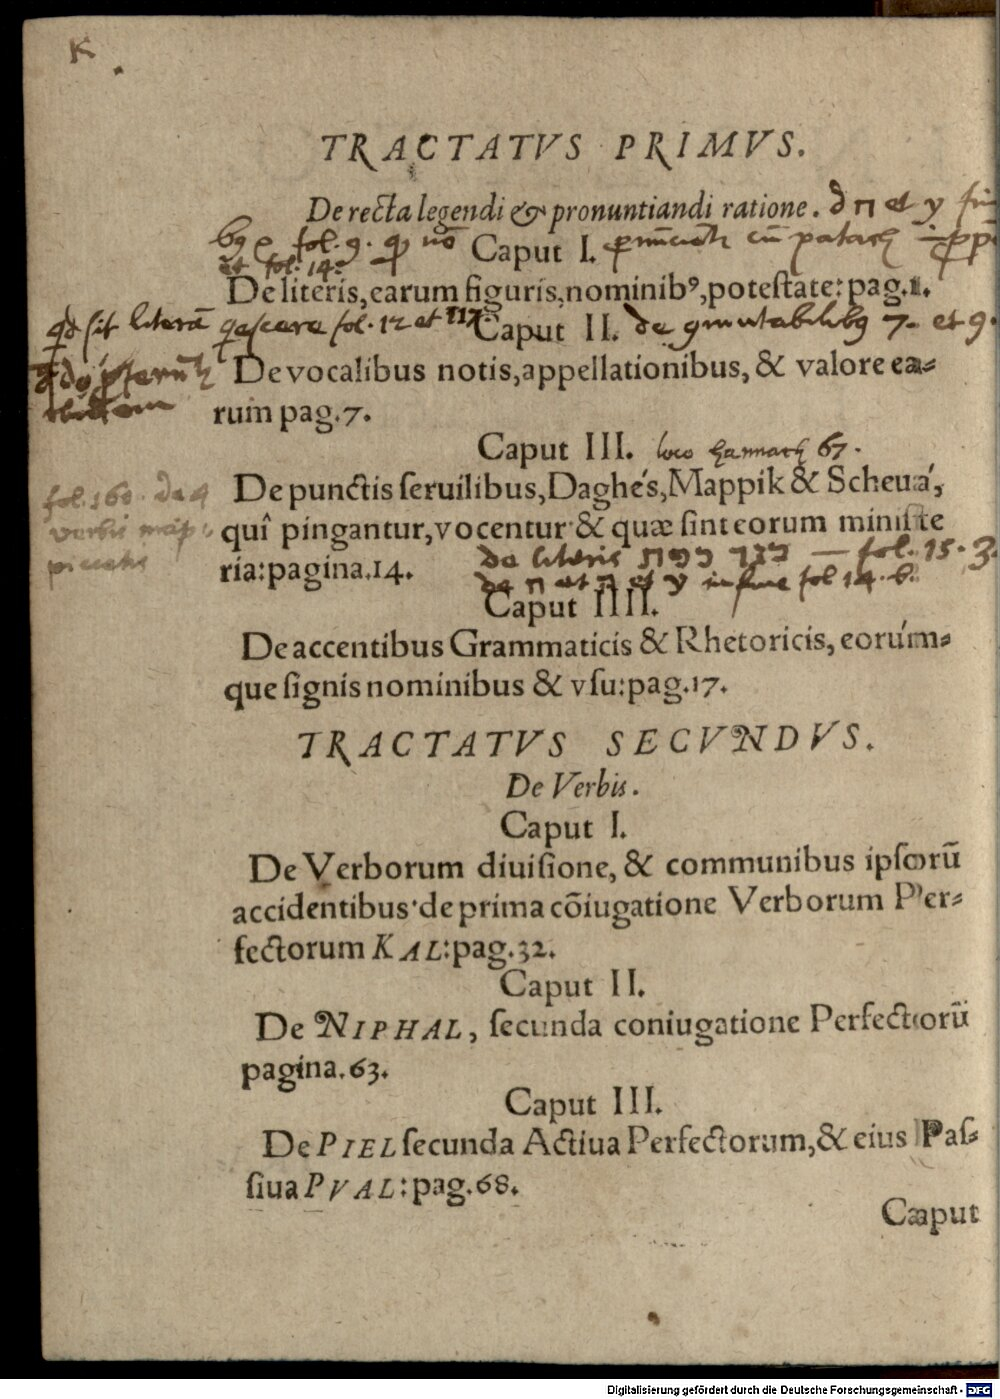 K.
TRACTATVS PRIMVS.
De recta legendi & pronuntiandi ratione. d ח et ע
fol. 9. Caput I.
et fol. 14.
De literis, earum figuris, nominibꝰ, poteſtate: pag.1.
qd ſit literā fol. 12 et Caput II. de 7. et 9.
De vocalibus notis, appellationibus, & valore ea-
rum pag.7.
Caput III. loco 67.
De punctis ſeruilibus, Daghés, Mappik & Scheuá,
fol. 160. de 4
quî pingantur, vocentur & quæ ſint eorum miniſte
verbis
ria: pagina.14. de literis — fol. 15.
de ה et ח et ע in fine fol 14. b.
Caput IIII.
De accentibus Grammaticis & Rhetoricis, eorúm-
que ſignis nominibus & vſu: pag.17.
TRACTATVS SECVNDVS.
De Verbis.
Caput I.
De Verborum diuiſione, & communibus ipſorū
accidentibus· de prima cõiugatione Verborum Per-
fectorum KAL: pag.32.
Caput II.
De NIPHAL, ſecunda coniugatione Perfectorū
pagina.63.
Caput III.
De PIEL ſecunda Actiua Perfectorum, & eius Paſ-
ſiua PVAL: pag.68.
Caput
Digitalisierung gefördert durch die Deutsche Forschungsgemeinschaft - DFG